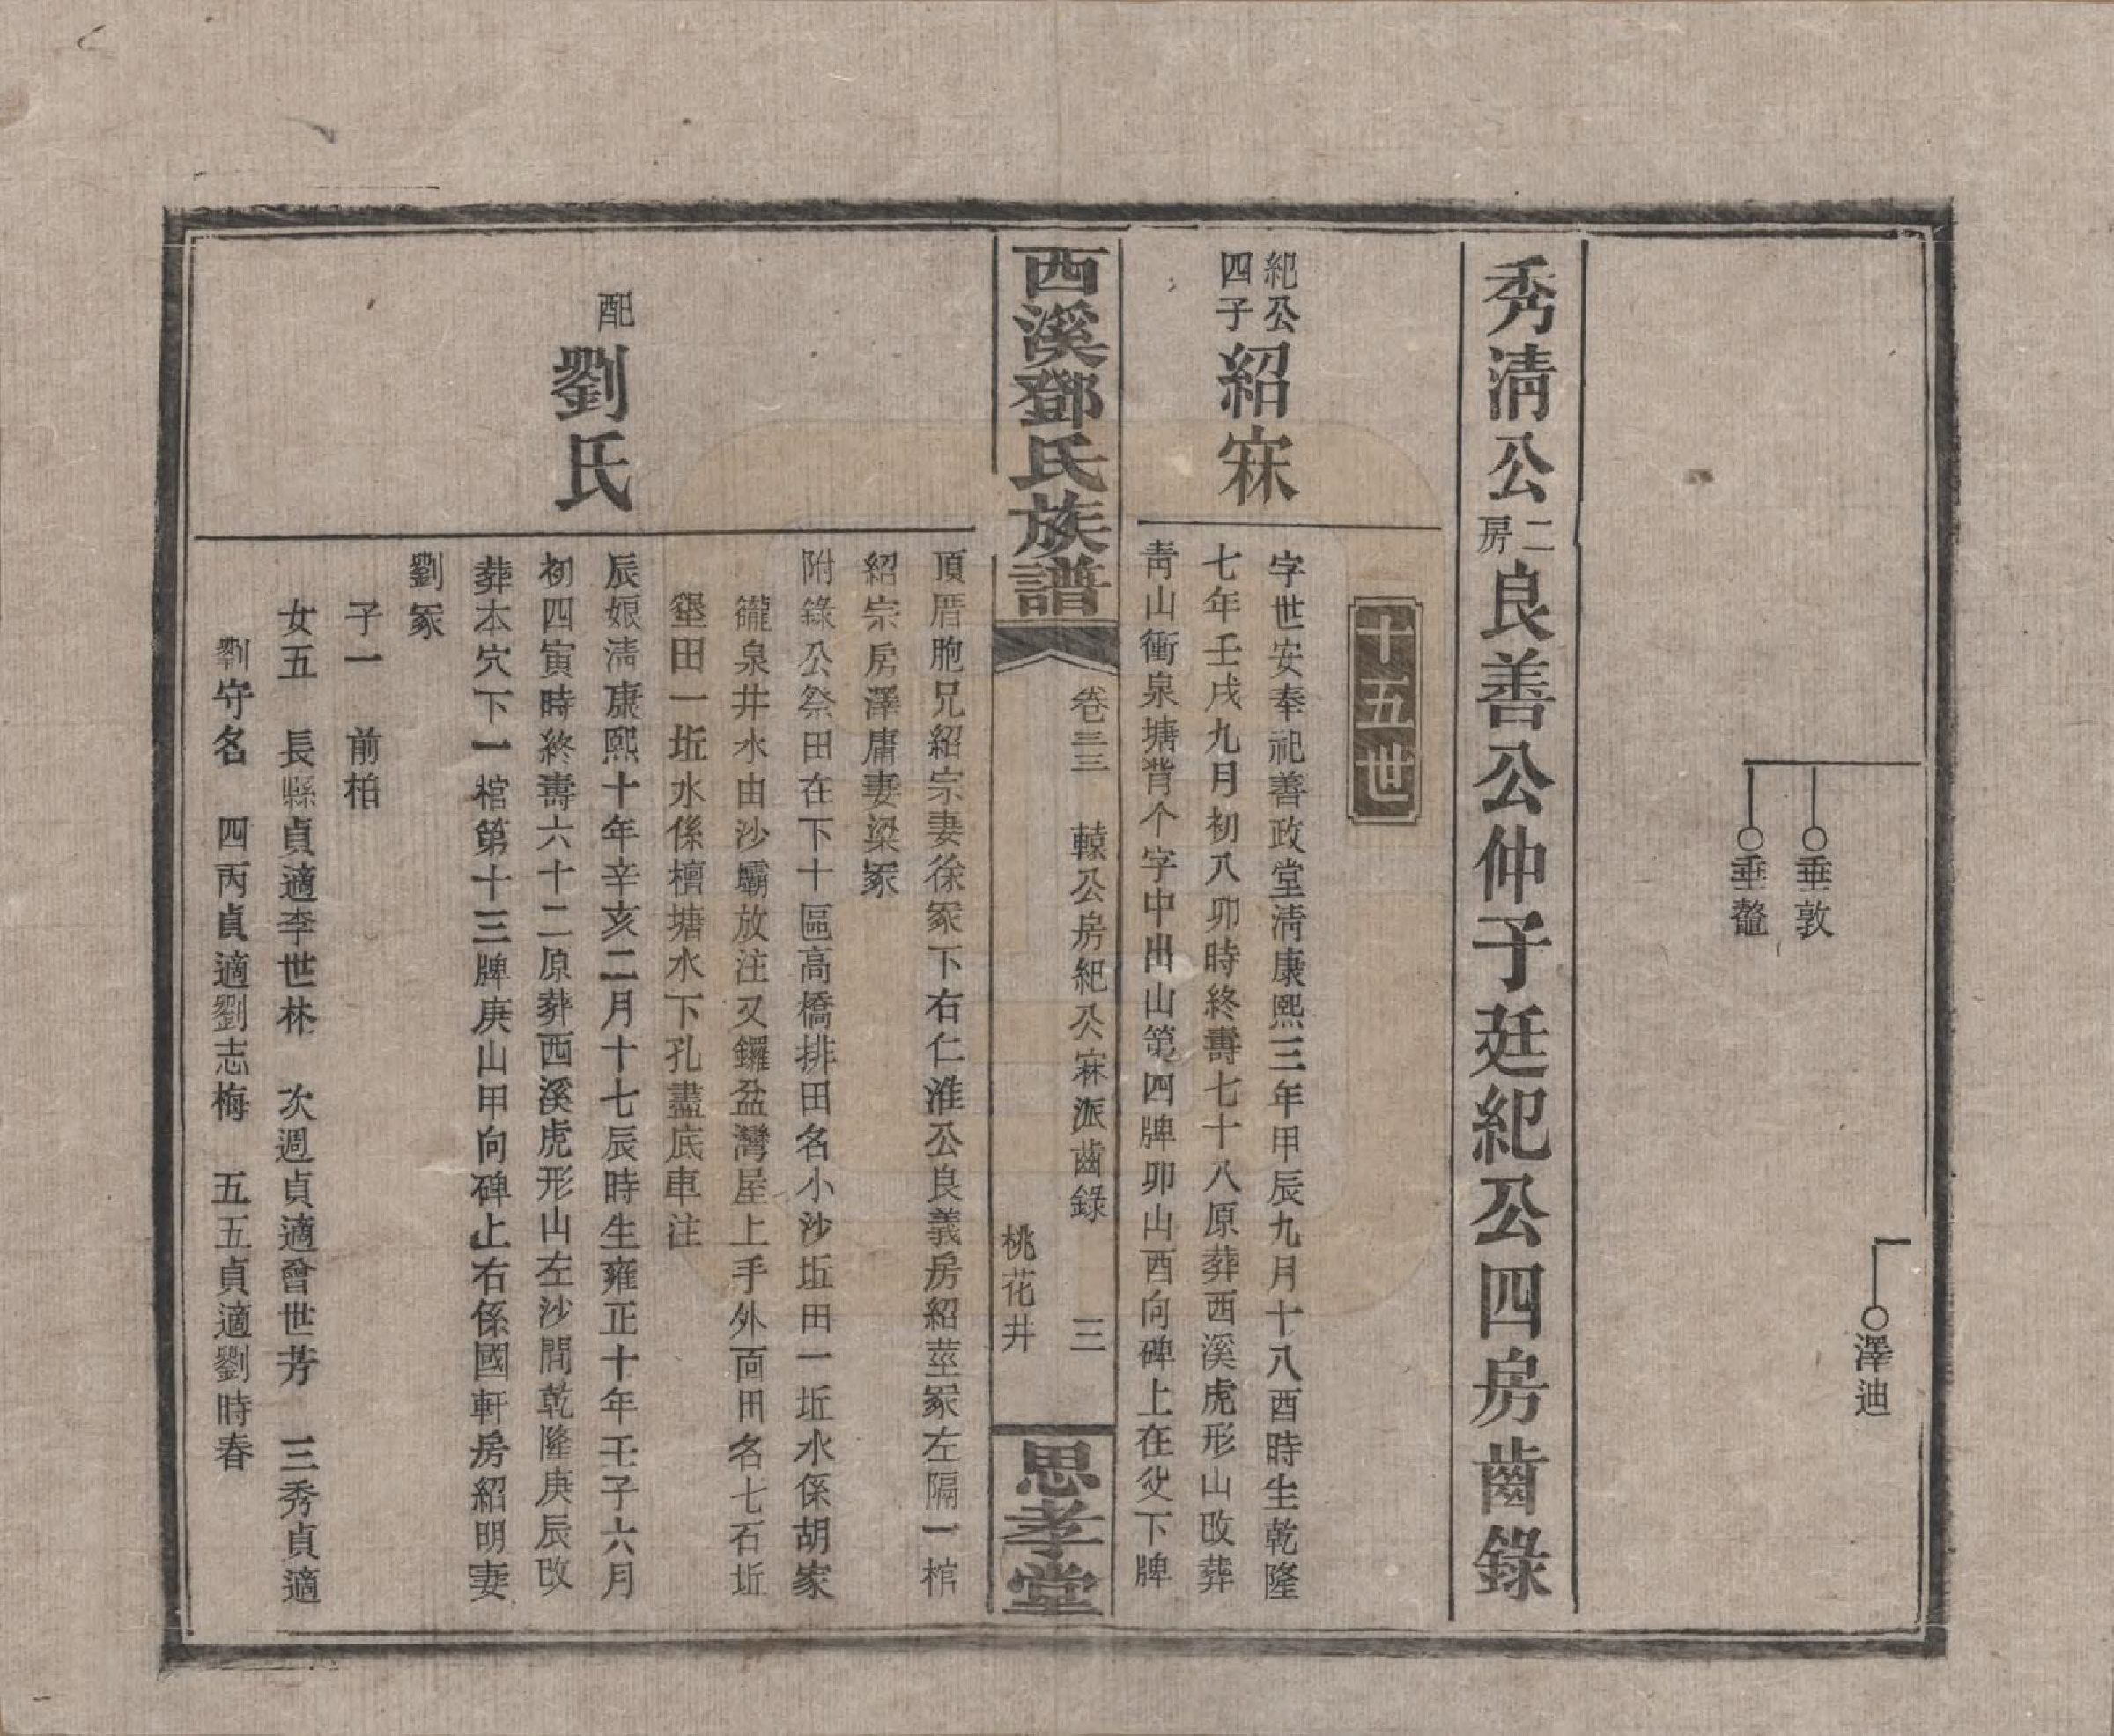 澤迪
垂敦
垂鼇
秀清公二房良善公仲子廷紀公四房齒錄
十五世
紀公四子紹寐
字世安奉祀善政堂淸康熙三年甲辰九月十八酉時生乾隆
七年壬戌九月初八卯時終壽七十八原葬西溪虎形山改葬
靑山衝泉塘背个字中出山第四牌卯山酉向碑上在父下牌
西溪鄧氏族譜
卷三三 轅公房紀公寐派齒錄 三
桃花井
思孝堂
頂厝胞兄紹宗妻徐冢下右仁淮公良義房紹莖冢左隔一棺
紹宗房澤庸妻梁冢
附錄公祭田在下十區高橋排田名小沙坵田一坵水係胡家
巃泉井水由沙壩放注又鑼盆灣屋上手外面田名七石坵
壟田一坵水係檀塘水下孔盡底車注
配劉氏
辰娘淸康熙十年辛亥二月十七辰時生雍正十年壬子六月
初四寅時終壽六十二原葬西溪虎形山左沙閒乾隆庚辰改
葬本穴下一棺第十三牌庚山甲向碑上右係國軒房紹明妻
劉冢
子一 前柏
女五 長縣貞適李世林 次週貞適曾世芳 三秀貞適
劉守名 四丙貞適劉志梅 五五貞適劉時春